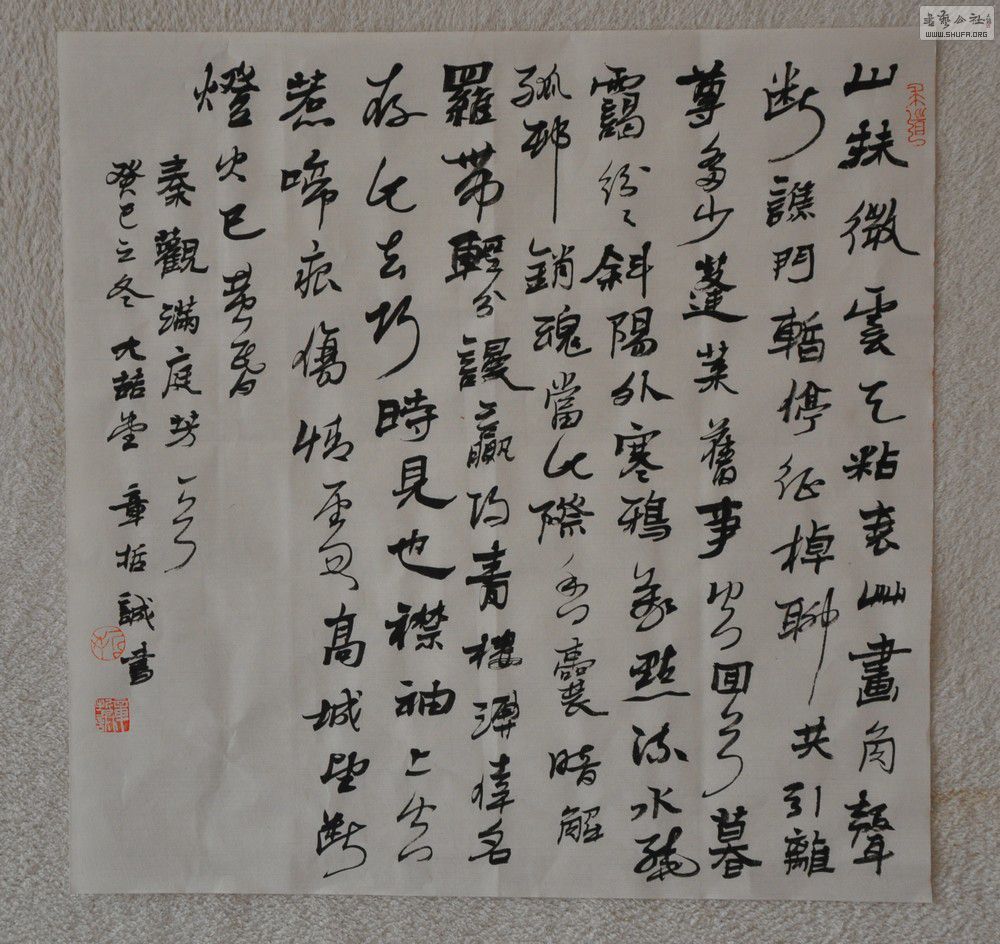 山抹微雲天粘衰艸畫角聲
斷譙門暫停征棹聊共引離
尊多少蓬萊舊事空回首暮
靄紛〻斜陽外寒鴉萬點流水繞
孤邨銷魂當此際香囊暗解
羅帶輕分謾贏得青樓薄倖名
存此去何時見也襟袖上空
惹啼痕傷情處高城望斷
燈火已黃昏
秦觀滿庭芳一首
癸巳之冬 喆堂 章哲誠書
書藝公社
WWW.SHUFA.ORG